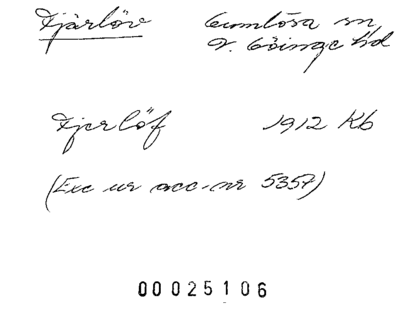 Fjärlöv Gumlösa sn,
V. Göinge hd
Fjerlöf 1912 Kb
(Exc ur acc.nr 5357)
00025106